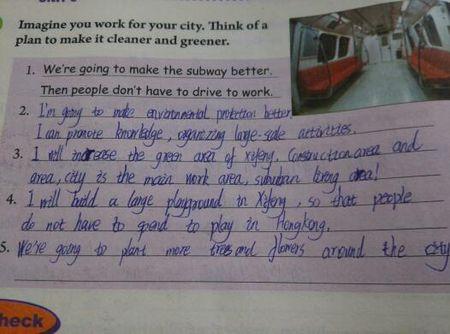 Imagine you work for your city. Think of a
plan to make it cleaner and greener.
1. We're going to make the subway better.
Then people don't have to drive to work.
2. I'm going to make environmental protection better
I can promote knowledge, organizing large-scale activities.
3. I will increase the green area of Xifeng, Construction area and
area, city is the main work area, suburban living area!
4. I will build a large playground in Xifeng, so that people
do not have to spend to play in Hongkong.
5. We're going to plant more trees and flowers around the city
heck